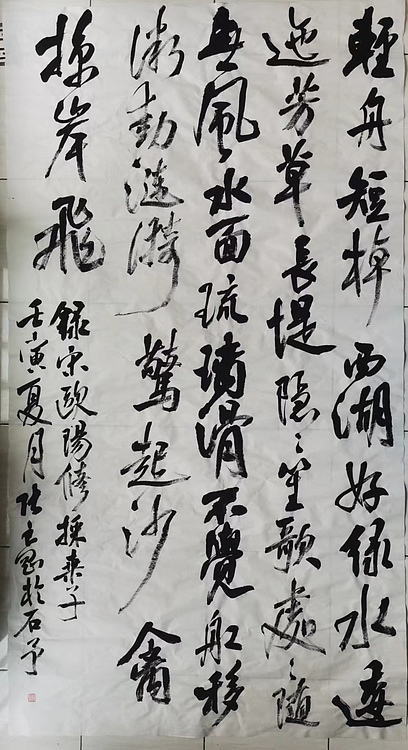 輕舟短棹西湖好緑水逶
迤芳草長堤隐々笙歌處々随
無風水面琉璃滑不覺舡移
微動漣漪驚起沙禽
掠岸飛
録宋歐陽修採桑子
壬寅夏月於石